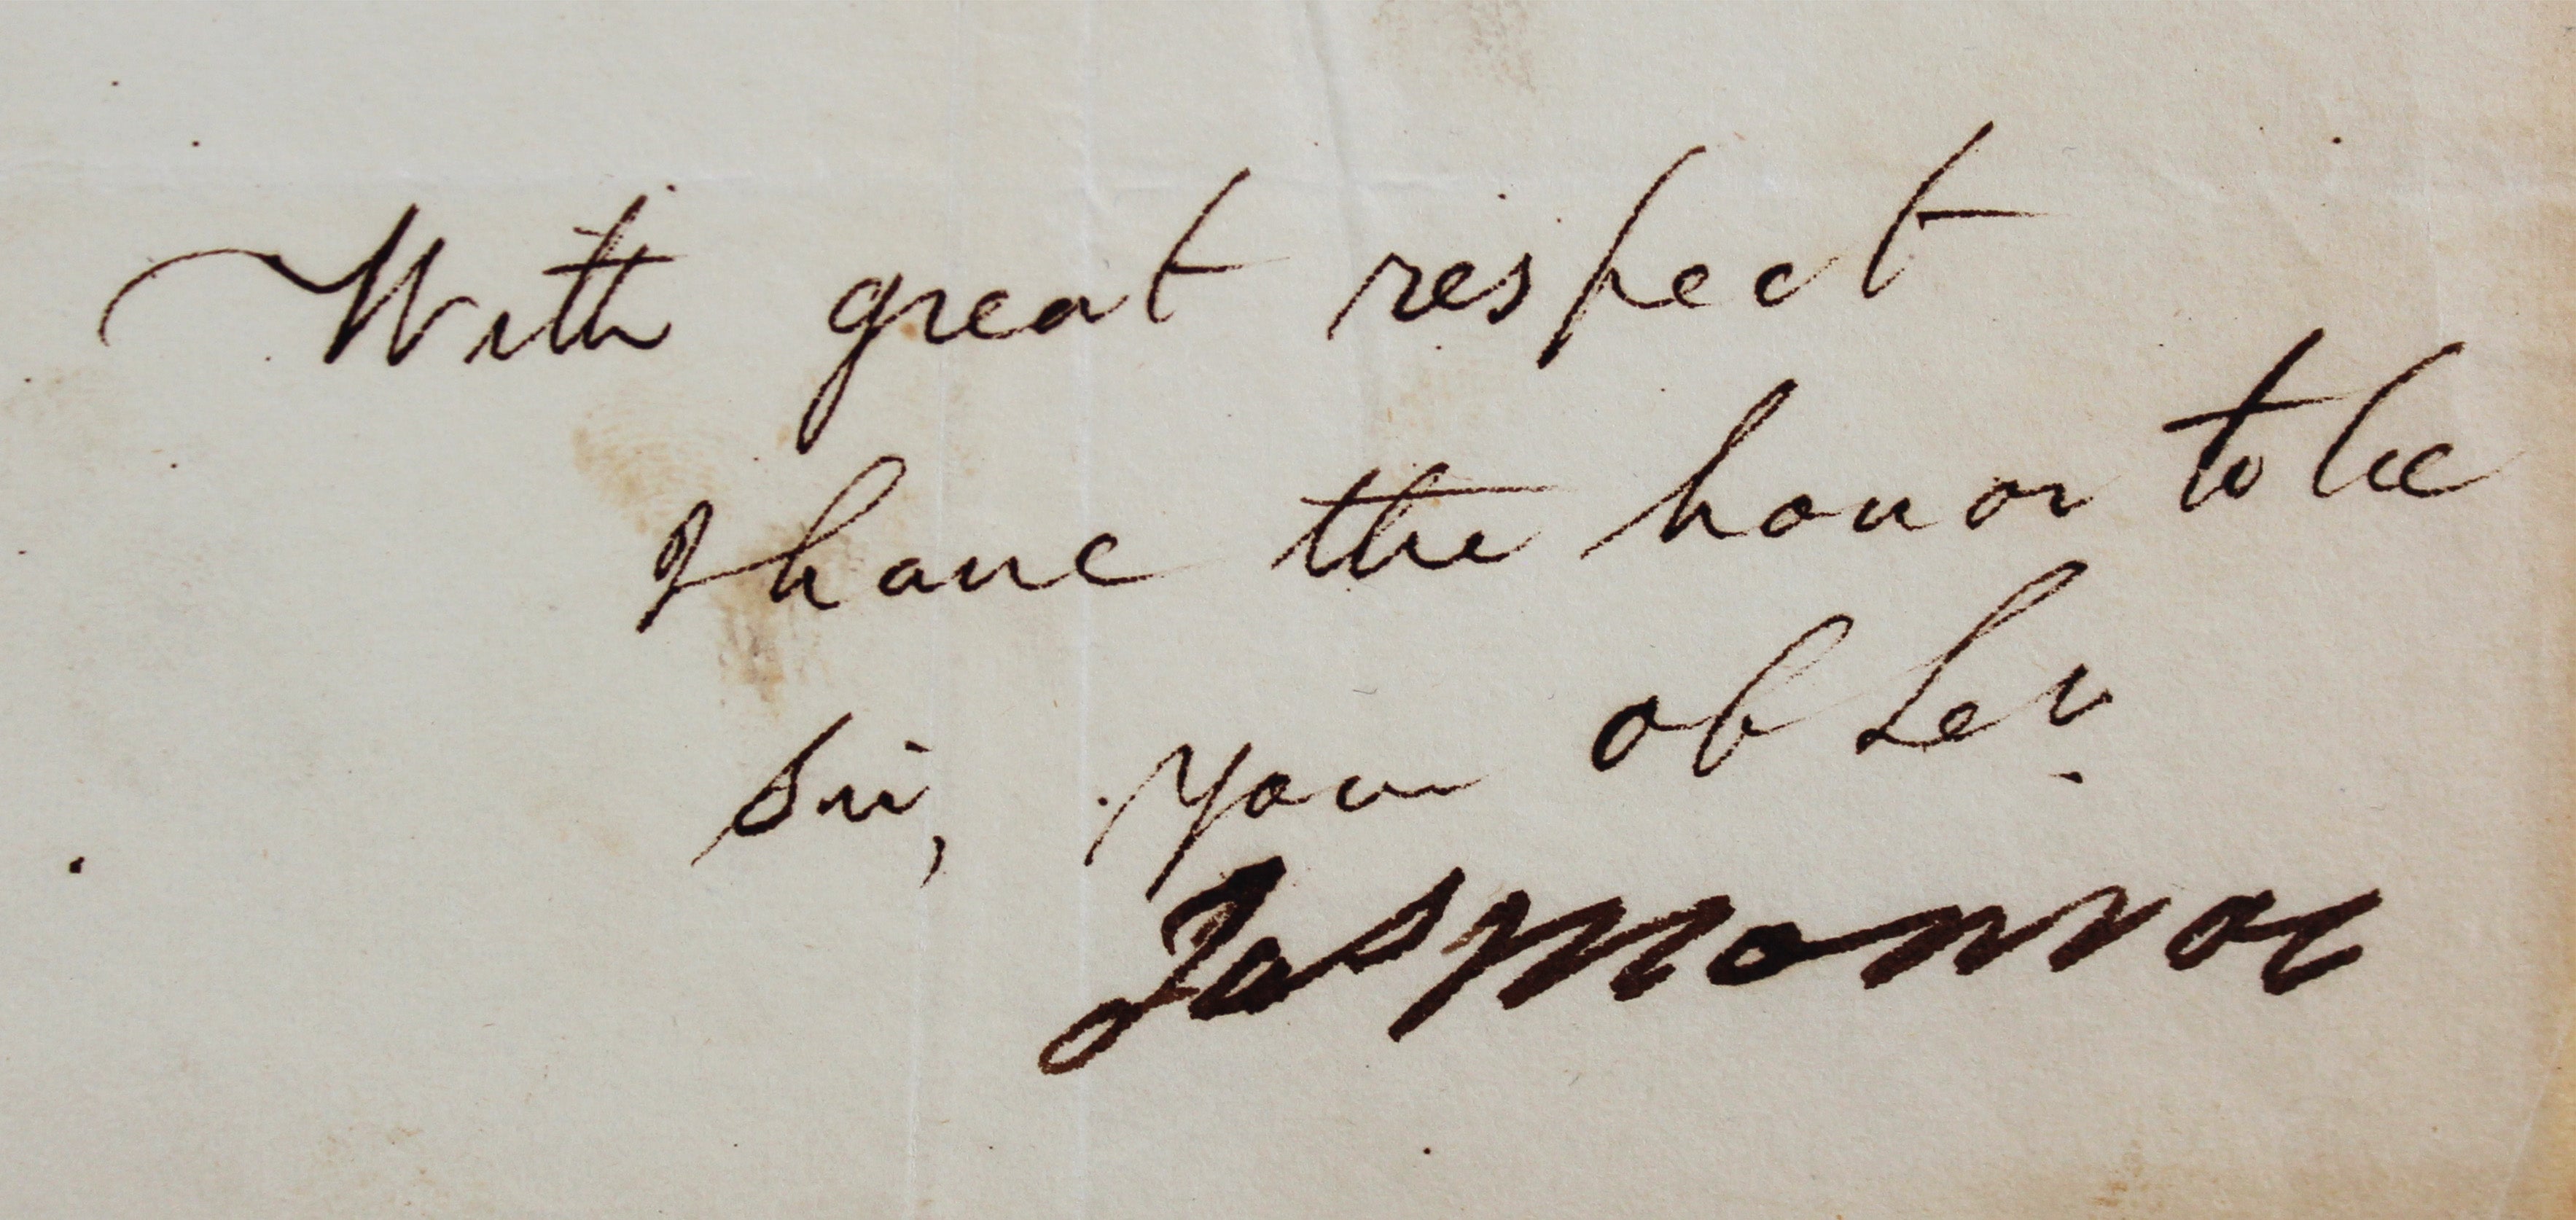 With great respect
I have the honor to be
Sir, your ob Serv
Jas Monroe